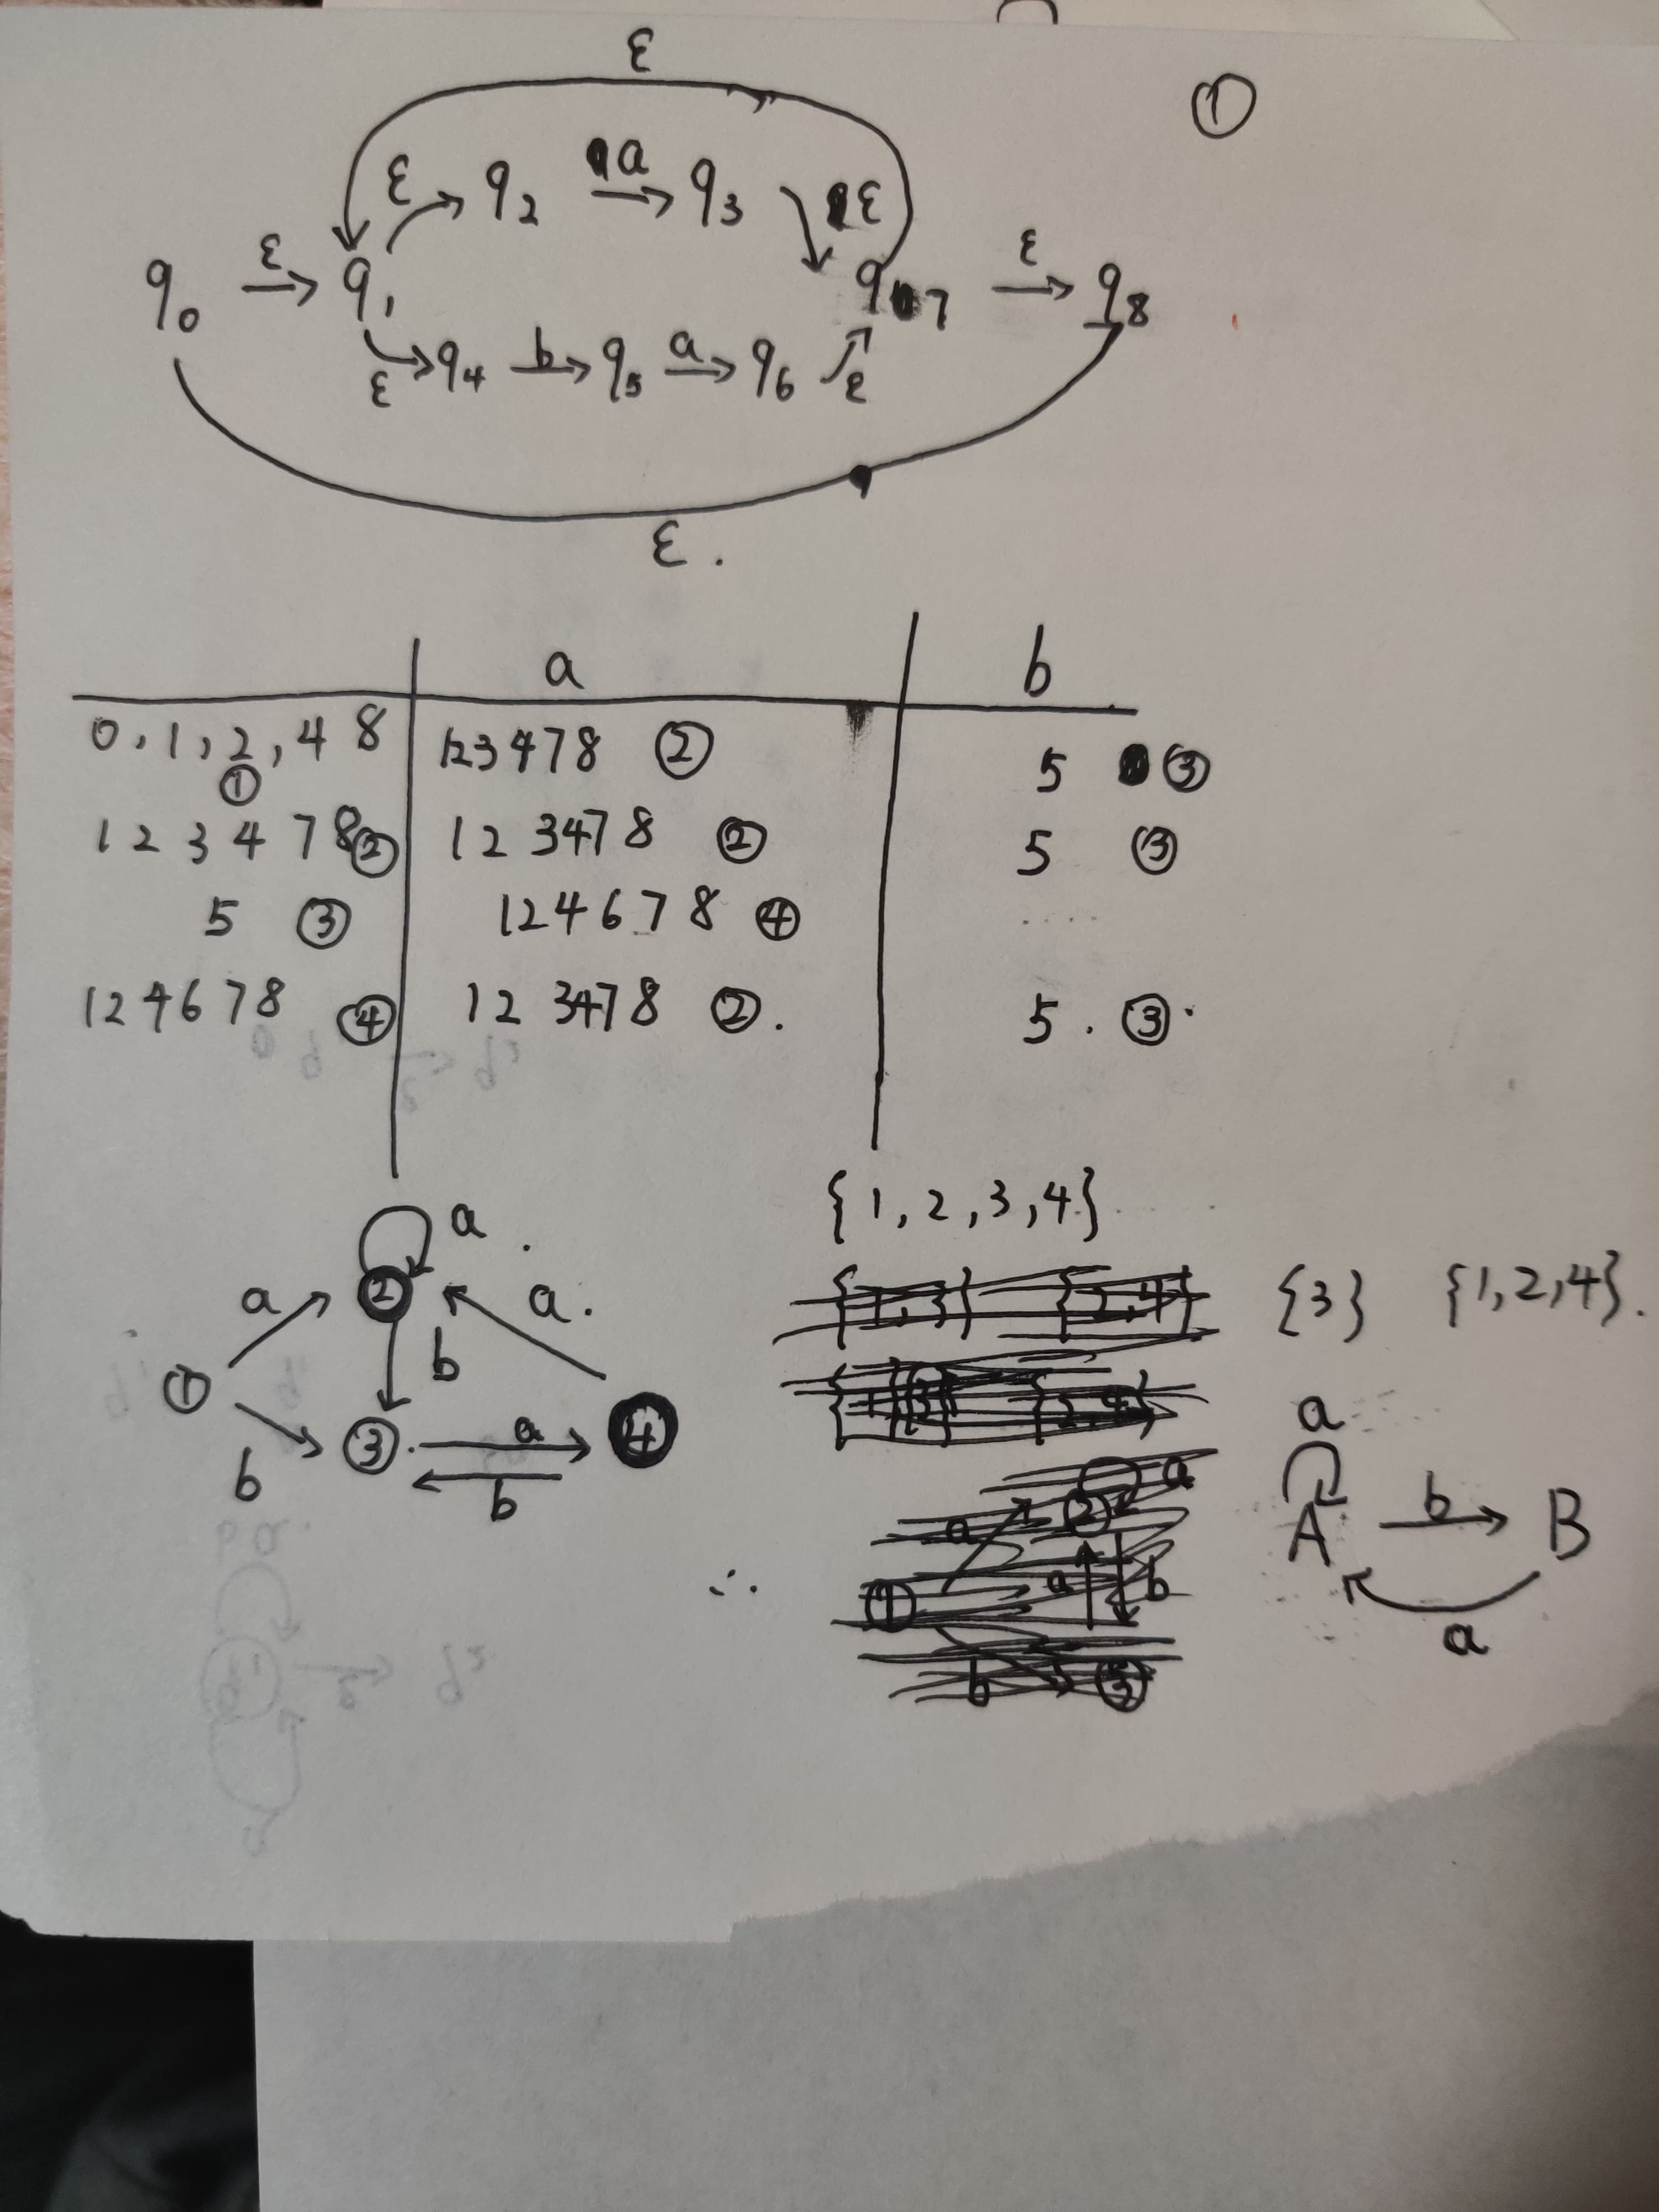 ε
①
ε q2 a q3 ε
q0 ε q1 q7 ε q8
ε q4 b q5 a q6 ε
ε .
a b
0,1,2,4 8 123478 ② 5 ③
①
1 2 3 4 7 8 ② 1 2 3478 ② 5 ③
5 ③ 124678 ④ ....
124678 ④ 12 3478 ②. 5 . ③.
{1,2,3,4}
a .
a ② a. {3} {1,2,4}.
b
① a
b ③ a ④ A b B
b
∴ a